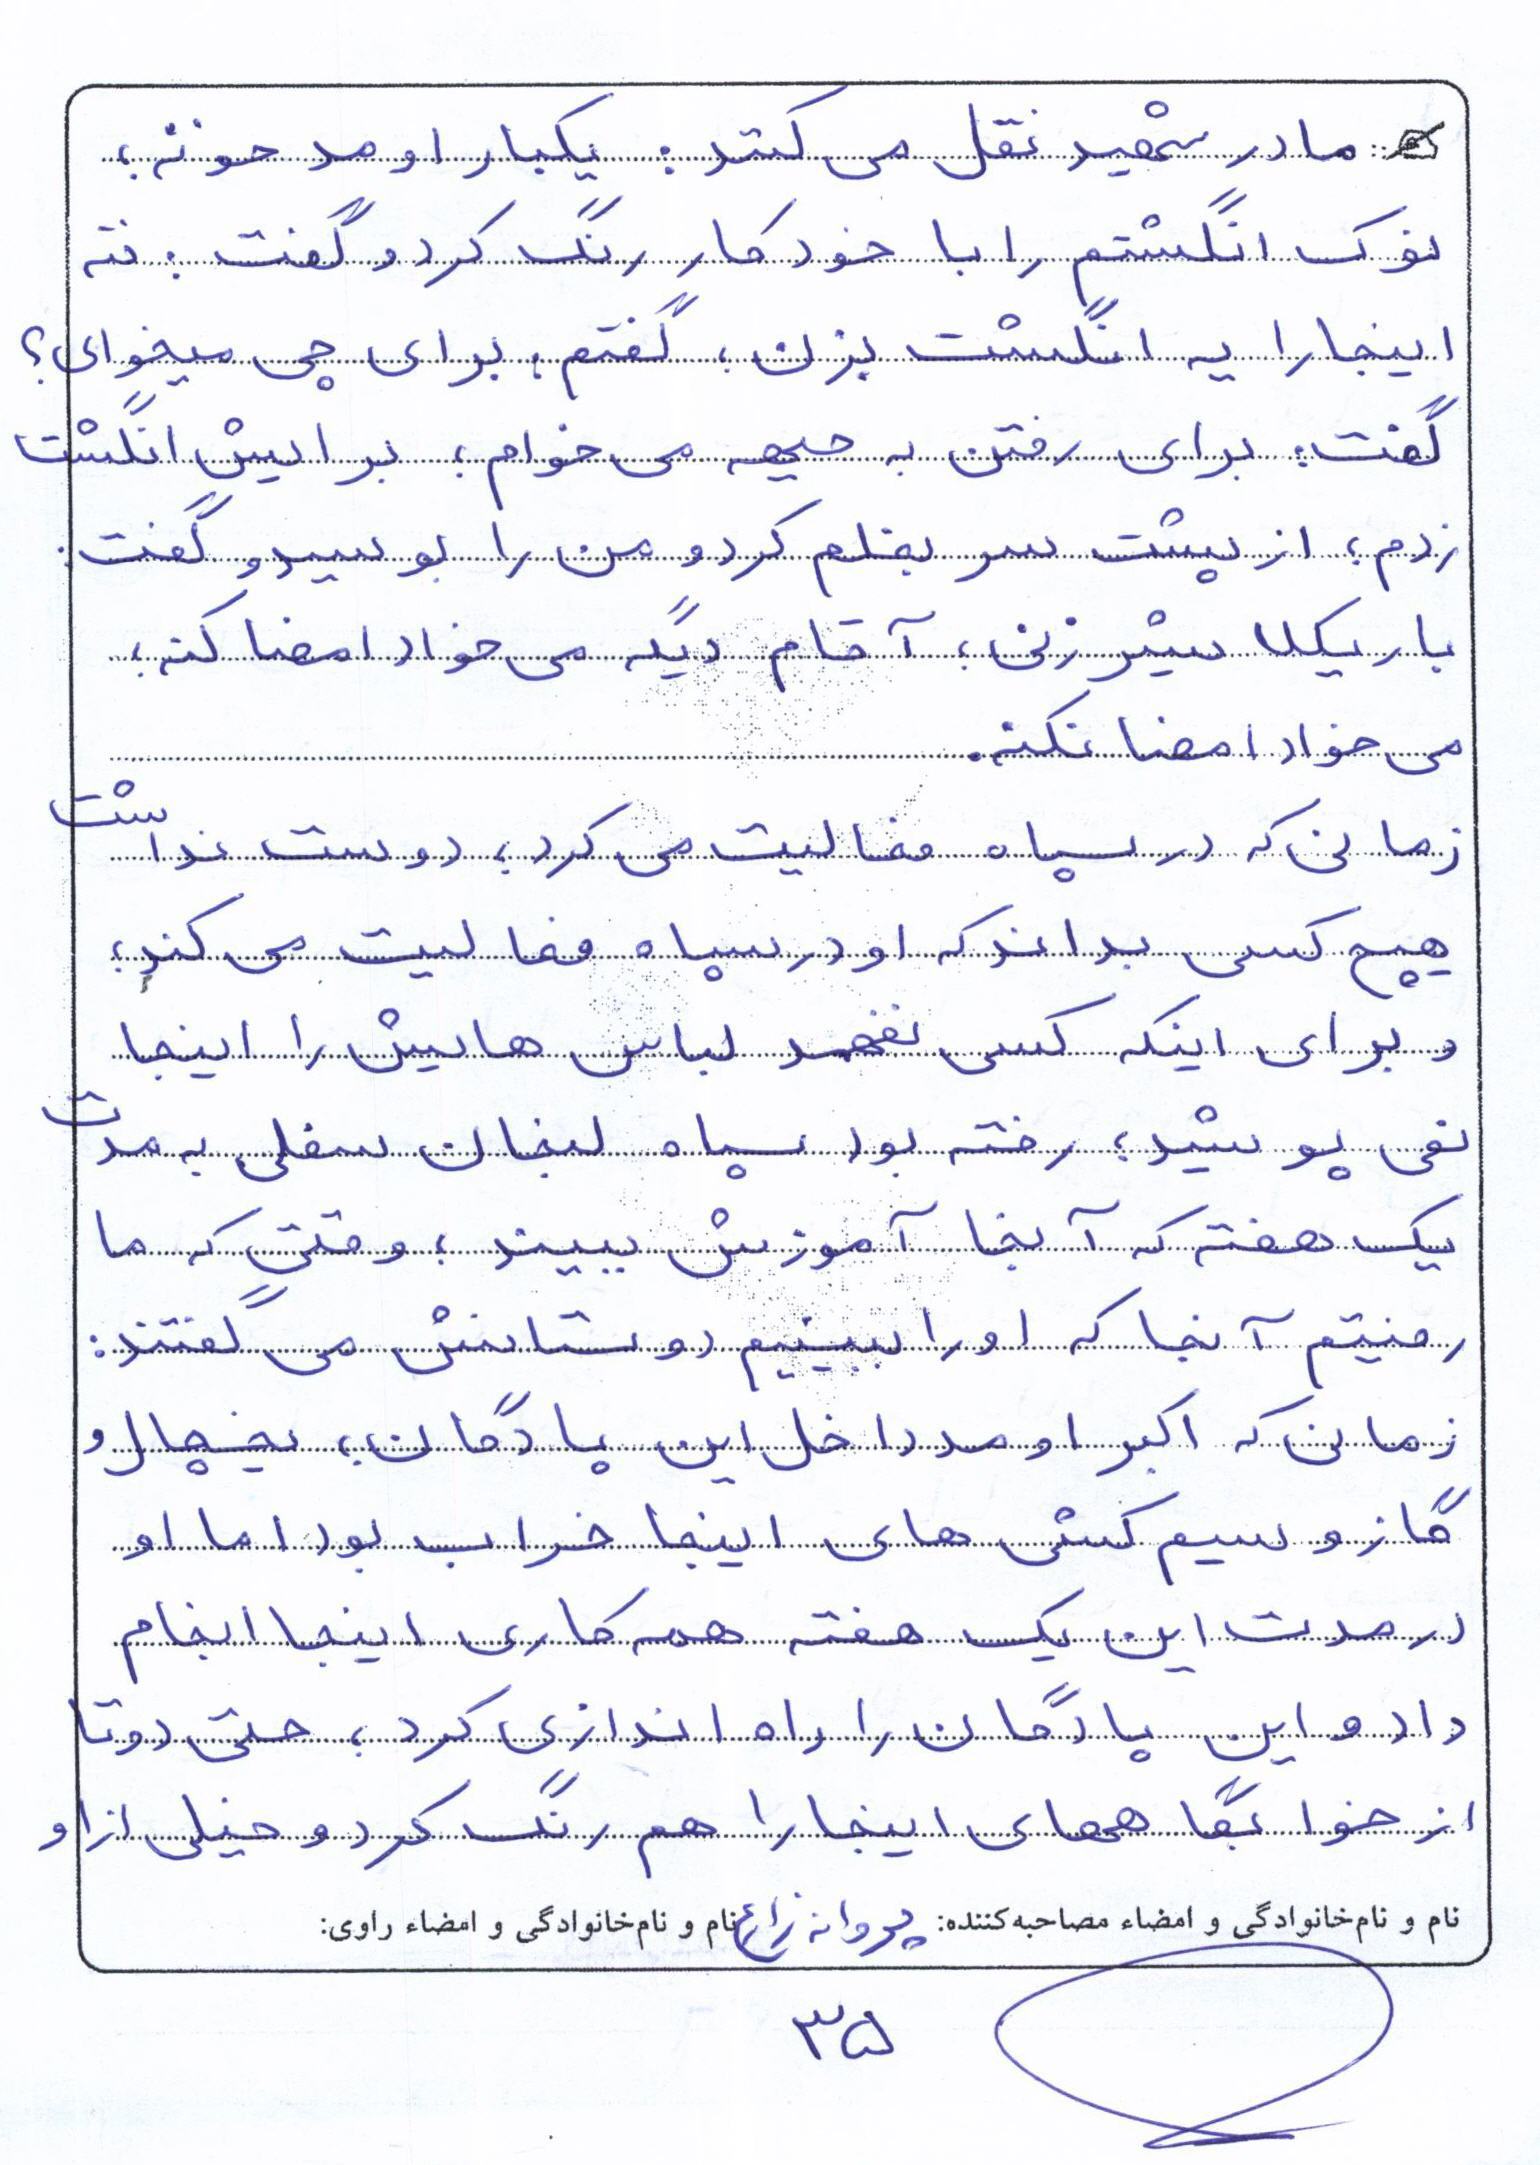 مادر شهید نقل می کند: یکبار اومد خونه؛
نوک انگشتم را با خودکار رنگ کرد و گفت: ننه
اینجا را یه انگشت بزن؛ گفتم: برای چی میخوای؟
گفت: برای رفتن به جبهه می خوام؛ برایش انگشت
زدم؛ از پشت سر بغلم کرد و من را بوسید و گفت:
باریکلا شیر زنی؛ آقام دیگه می خواد امضا کنه؛
می خواد امضا نکنه.
زمانی که در سپاه فعالیت می کرد؛ دوست نداشت
هیچ کسی بداند که او در سپاه فعالیت می کند؛
و برای اینکه کسی نفهمد لباس هایش را اینجا
نمی پوشید؛ رفته بود سپاه لنجان سفلی به مدت
یک هفته که آنجا آموزش ببیند؛ وقتی که ما
رفتیم آنجا که او را ببینیم دوستانش می گفتند:
زمانی که اکبر اومد داخل این پادگان؛ یخچال و
گاز و سیم کشی های اینجا خراب بود اما او
در مدت این یک هفته همه کاری اینجا انجام
داد و این پادگان را راه اندازی کرد؛ حتی دوتا
از خوابگاههای اینجا را هم رنگ کرد و خیلی از او
نام و نام‌خانوادگی و امضاء مصاحبه‌کننده: پروانه زارع نام و نام‌خانوادگی و امضاء راوی:
۳۵